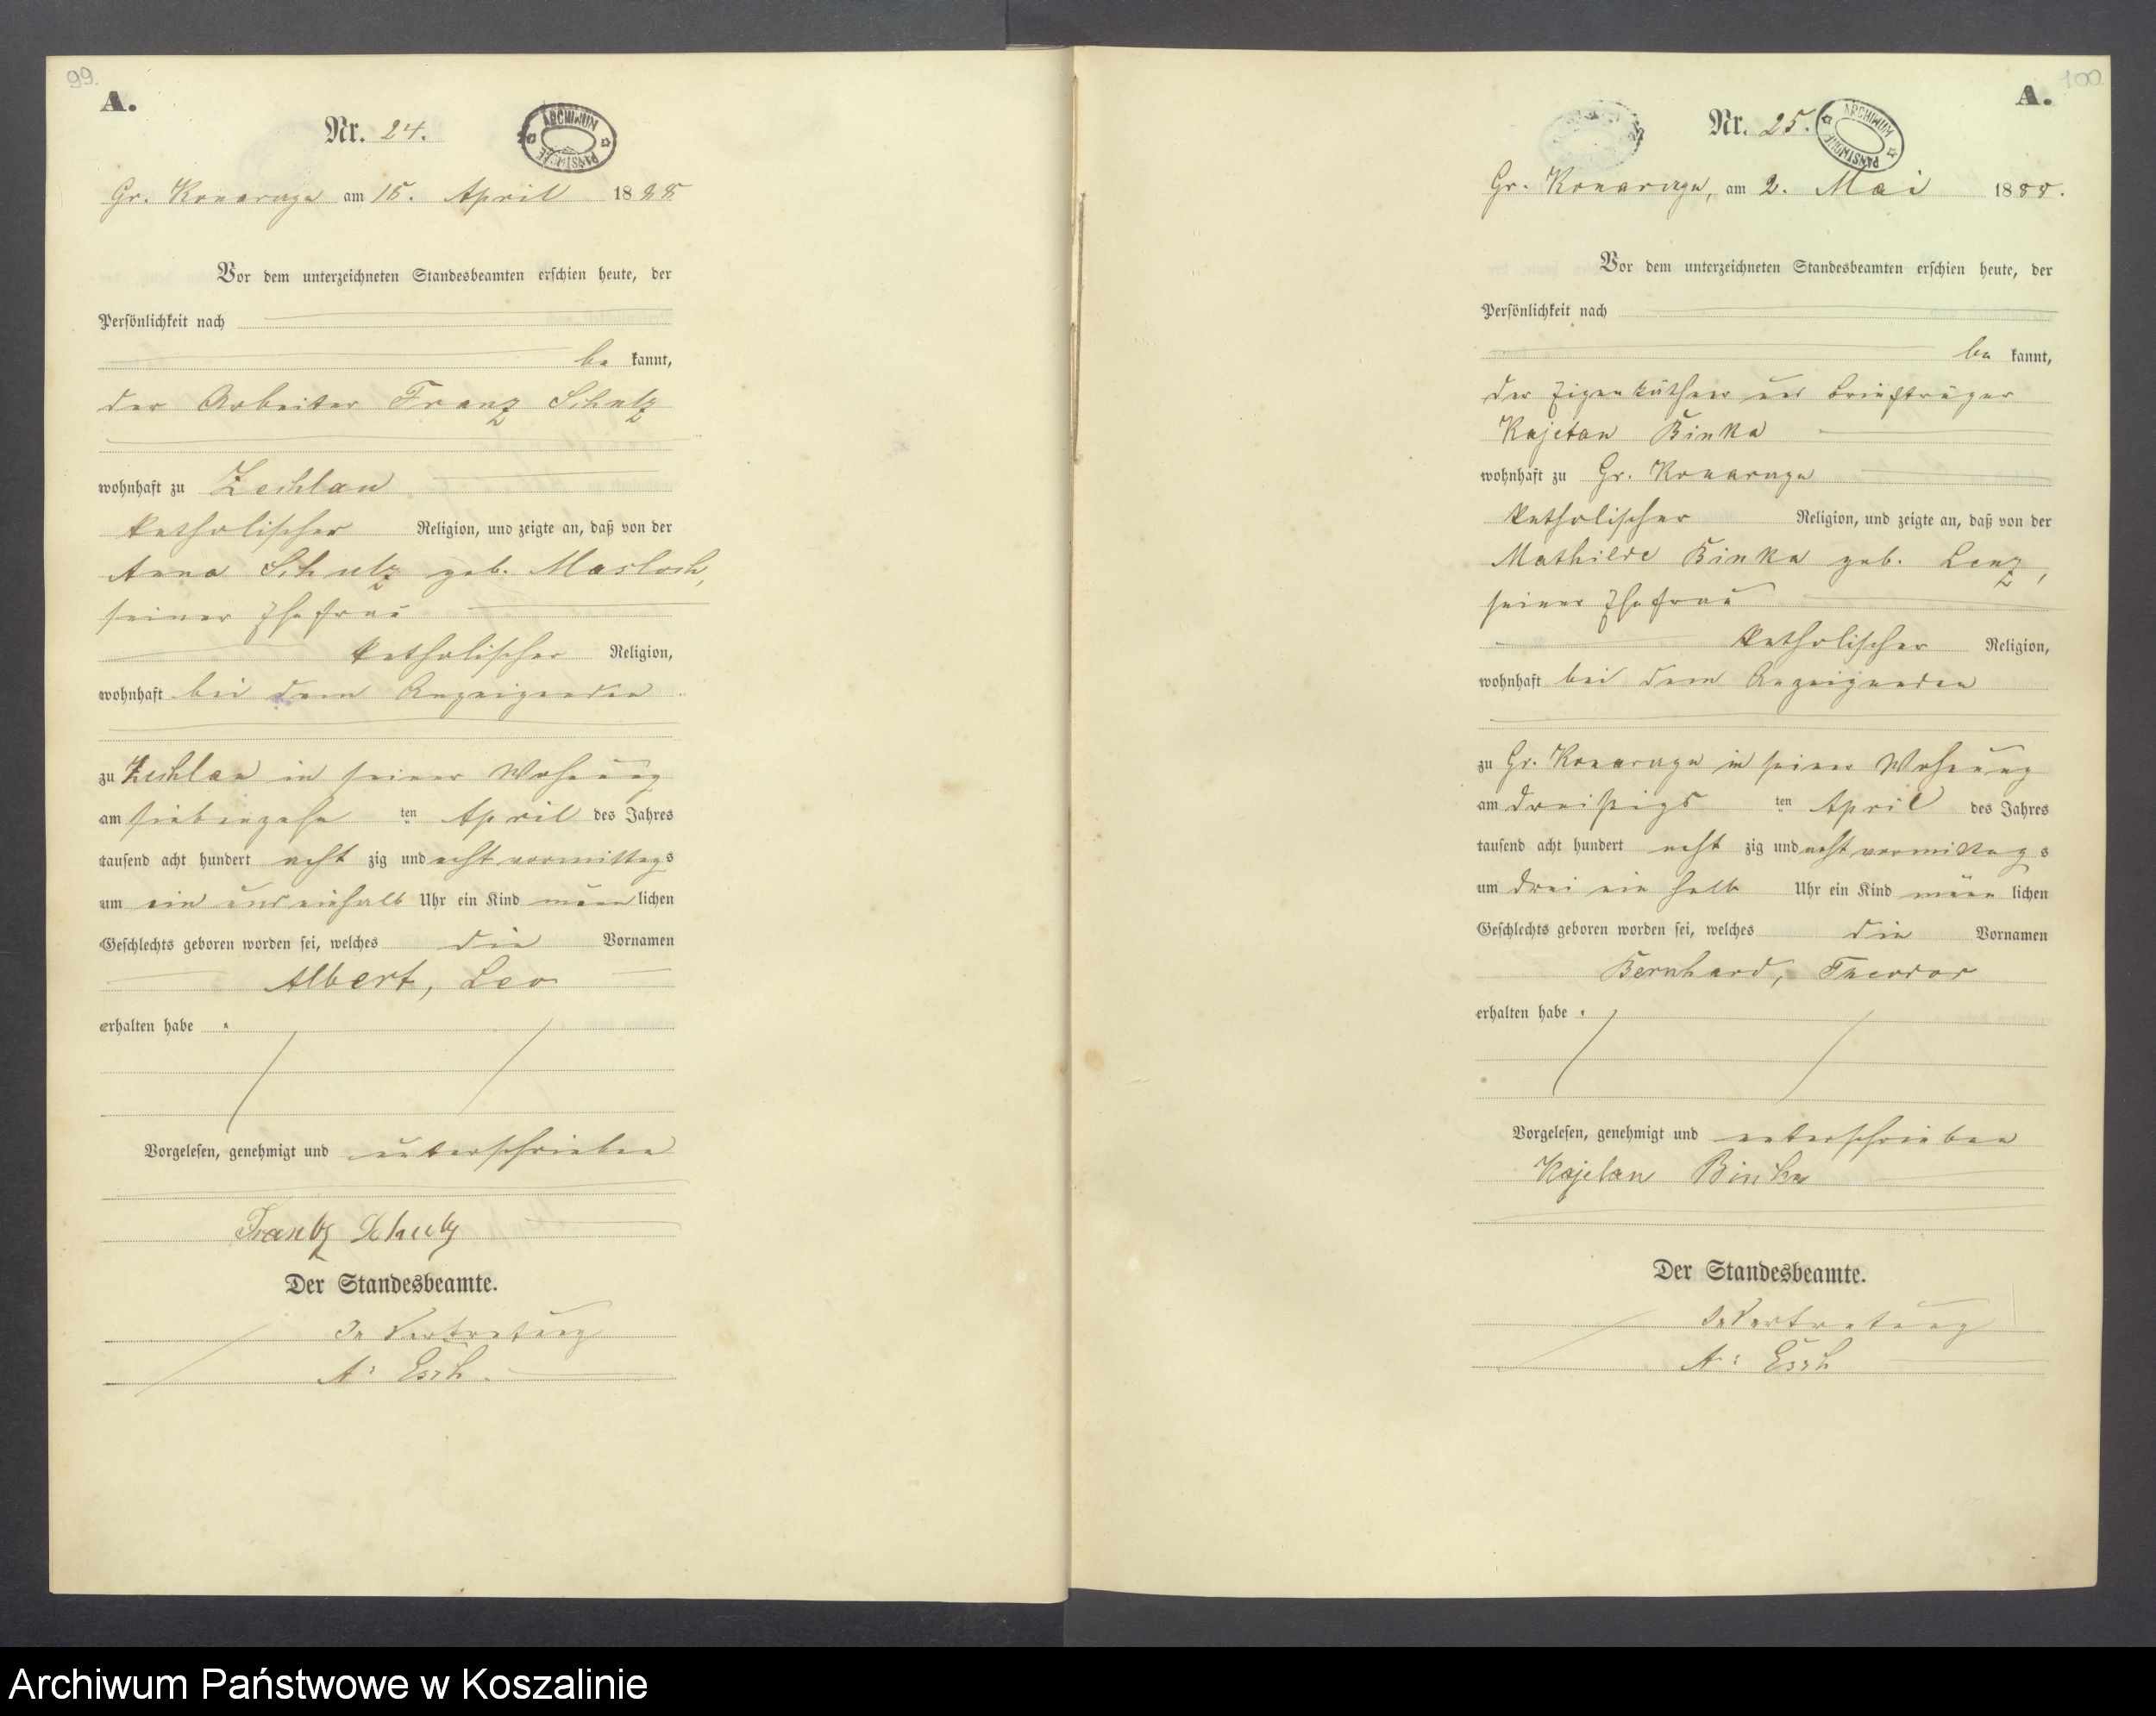 99.
A.
Nr. 24.
ARCHIWUM PAŃSTWOWE
Gr. Konarczyn am 18. April 1888
Vor dem unterzeichneten Standesbeamten erschien heute, der
Persönlichkeit nach
be kannt,
der Arbeiter Franz Schulz
wohnhaft zu Zechlau
katholischer Religion, und zeigte an, daß von der
Anna Schulz geb. Masloch,
seiner Ehefrau
katholischer Religion,
wohnhaft bei dem Anzeigenden
zu Zechlau in seiner Wohnung
am siebenzehn ten April des Jahres
tausend acht hundert acht zig und acht vormittags
um ein und einhalb Uhr ein Kind männ lichen
Geschlechts geboren worden sei, welches die Vornamen
Albert, Leo
erhalten habe.
Vorgelesen, genehmigt und unterschrieben
Frantz Schulz
Der Standesbeamte.
In Vertretung
A: Esch.
100
A.
Nr. 25.
ARCHIWUM PAŃSTWOWE
Gr. Konarczyn, am 2. Mai 1888.
Vor dem unterzeichneten Standesbeamten erschien heute, der
Persönlichkeit nach
be kannt,
der Eigenkäthner und Briefträger
Kajetan Binka
wohnhaft zu Gr. Konarczyn
katholischer Religion, und zeigte an, daß von der
Mathilde Binka geb. Lenz,
seiner Ehefrau
katholischer Religion,
wohnhaft bei dem Anzeigenden
zu Gr. Konarczyn in seiner Wohnung
am dreißigs ten April des Jahres
tausend acht hundert acht zig und acht vormittags
um drei ein halb Uhr ein Kind männ lichen
Geschlechts geboren worden sei, welches die Vornamen
Bernhard, Theodor
erhalten habe.
Vorgelesen, genehmigt und unterschrieben
Kajetan Binka
Der Standesbeamte.
In Vertretung
A: Esch
Archiwum Państwowe w Koszalinie